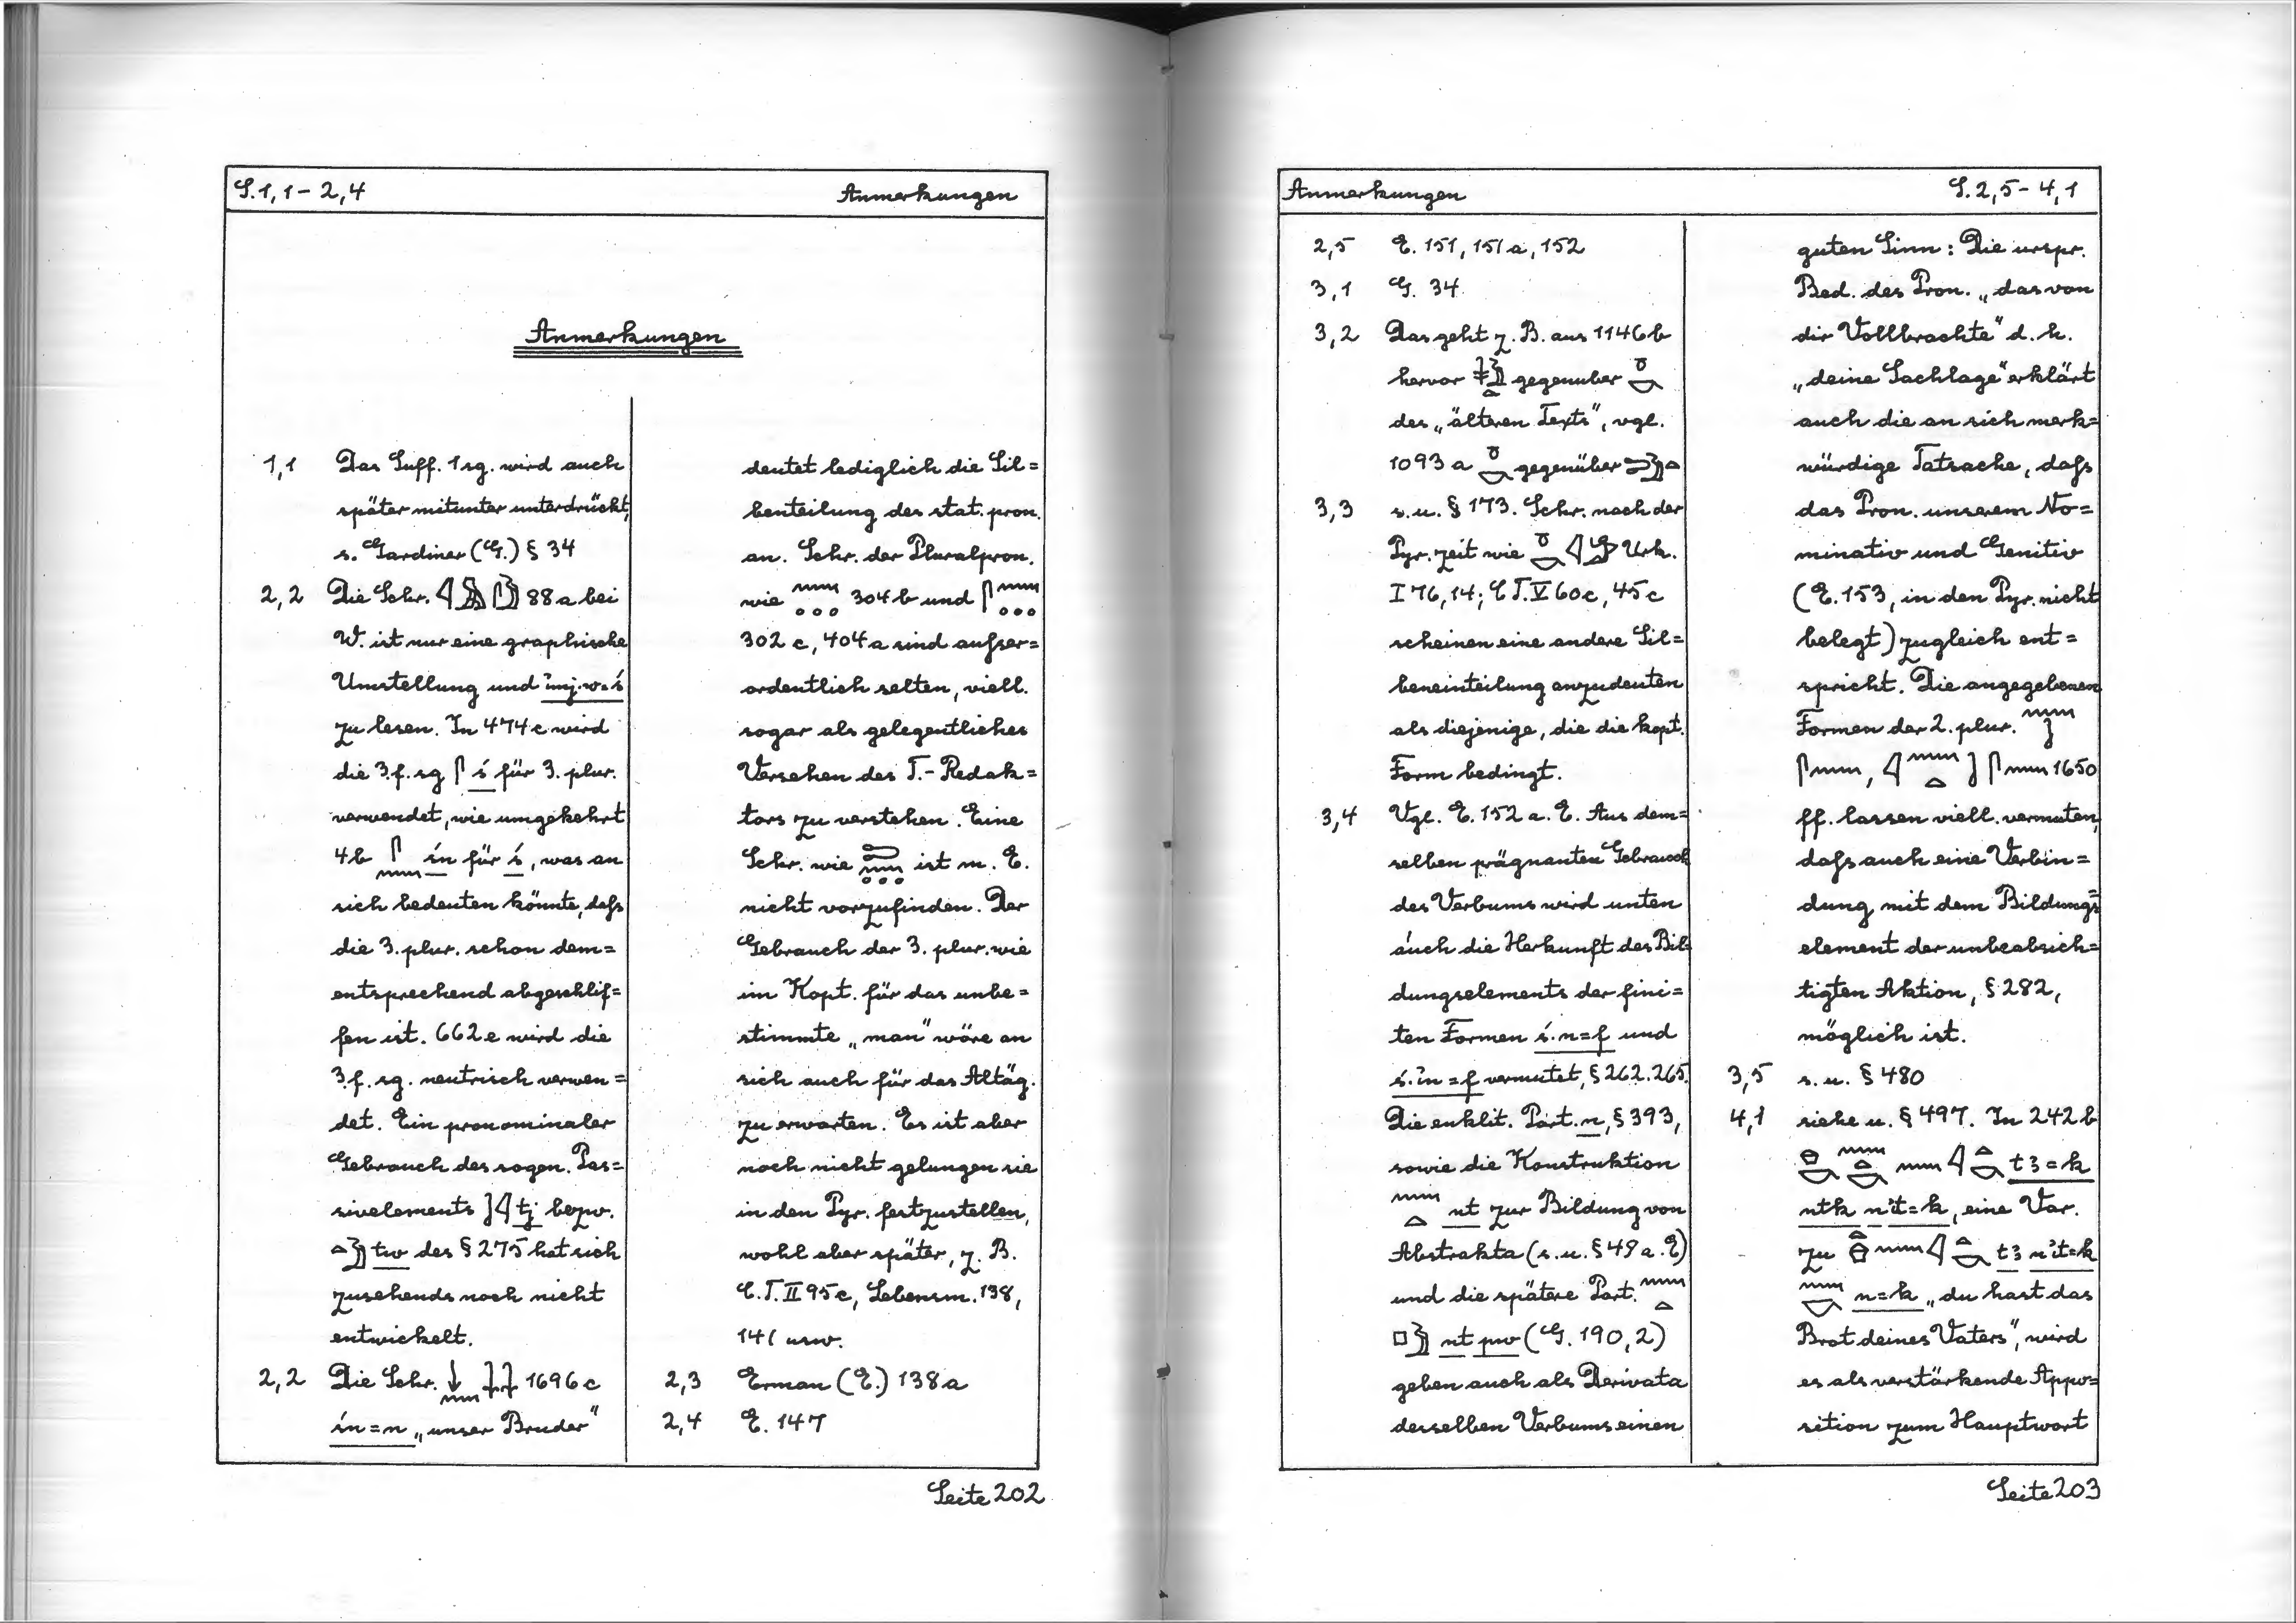 S.1,1 - 2,4 Anmerkungen
Anmerkungen
1,1 Das Suff. 1 sg. wird auch
später mitunter unterdrückt,
s. Gardiner (G.) § 34
2,2 Die Schr. 88a bei
W. ist nur eine graphische
Umstellung und
zu lesen. In 474c wird
die 3.f.sg ś für 3. plur.
verwendet, wie umgekehrt
4b śn für ś, was an
sich bedeuten könnte, daſs
die 3. plur. schon dem=
entsprechend abgeschlif=
fen ist. 662e wird die
3.f. sg. neutrisch verwen=
det. Ein pronominaler
Gebrauch des sogen. Pas=
sivelements tj bezw.
tw des § 275 hat sich
zusehends noch nicht
entwickelt.
2,2 Die Schr. 1696c
śn=n „unser Bruder"
deutet lediglich die Sil=
benteilung des stat. pron.
an. Schr. der Pluralpron.
wie 304b und
302c, 404a sind aufser=
ordentlich selten, viell.
sogar als gelegentliches
Versehen des T.-Redak=
tors zu verstehen. Eine
Schr. wie ist m. E.
nicht vorzufinden. Der
Gebrauch der 3. plur. wie
im Kopt. für das unbe=
stimmte „man" wäre an
sich auch für das Altäg.
zu erwarten. Es ist aber
noch nicht gelungen sie
in den Pyr. festzustellen,
wohl aber später, z. B.
C.T. II 95c, Lebensm. 138,
141 usw.
2,3 Erman (E.) 138a
2,4 E. 147
Seite 202
Anmerkungen S.2,5 - 4,1
2,5 E. 151, 151a, 152
3,1 G. 34
3,2 Das geht z. B. aus 1146b
hervor gegenuber
des „älteren Texts", vgl.
1093a gegenüber
3,3 s.u. § 173. Schr. nach der
Pyr. zeit wie Urk.
I 76,14; CT. V 60c, 45c
scheinen eine andere Sil=
beneinteilung anzudeuten
als diejenige, die die kopt.
Form bedingt.
3,4 Vgl. E. 152 a. E. Aus dem=
selben prägnanten Gebrauch
des Verbums wird unten
auch die Herkunft des Bil=
dungselements der fini=
ten Formen ś.n=f und
ś.ỉn=f vermutet, § 262.265.
Die enklit. Part. n, § 393,
sowie die Konstruktion
nt zur Bildung von
Abstrakta (s.u. § 49 a. E)
und die spätere Part.
nt pw (G. 190,2)
geben auch als Derivata
desselben Verbums einen
guten Sinn: Die urspr.
Bed. des Pron. „das von
dir Vollbrachte" d. h.
„deine Sachlage" erklärt
auch die an sich merk=
würdige Tatsache, daſs
das Pron. unserem No=
minativ und Genitiv
(E. 153, in den Pyr. nicht
belegt) zugleich ent=
spricht. Die angegebenen
Formen der 2. plur.
1650
ff. lassen viell. vermuten,
daſs auch eine Verbin=
dung mit dem Bildungs=
element der unbeabsich=
tigten Aktion, § 282,
möglich ist.
3,5 s. u. § 480
4,1 siehe u. § 497. In 242b
tꜣ=k
ntk n ỉt=k, eine Var.
zu tꜣ n ỉt=k
n=k „du hast das
Brot deines Vaters", wird
es als verstärkende Appo=
sition zum Hauptwort
Seite 203